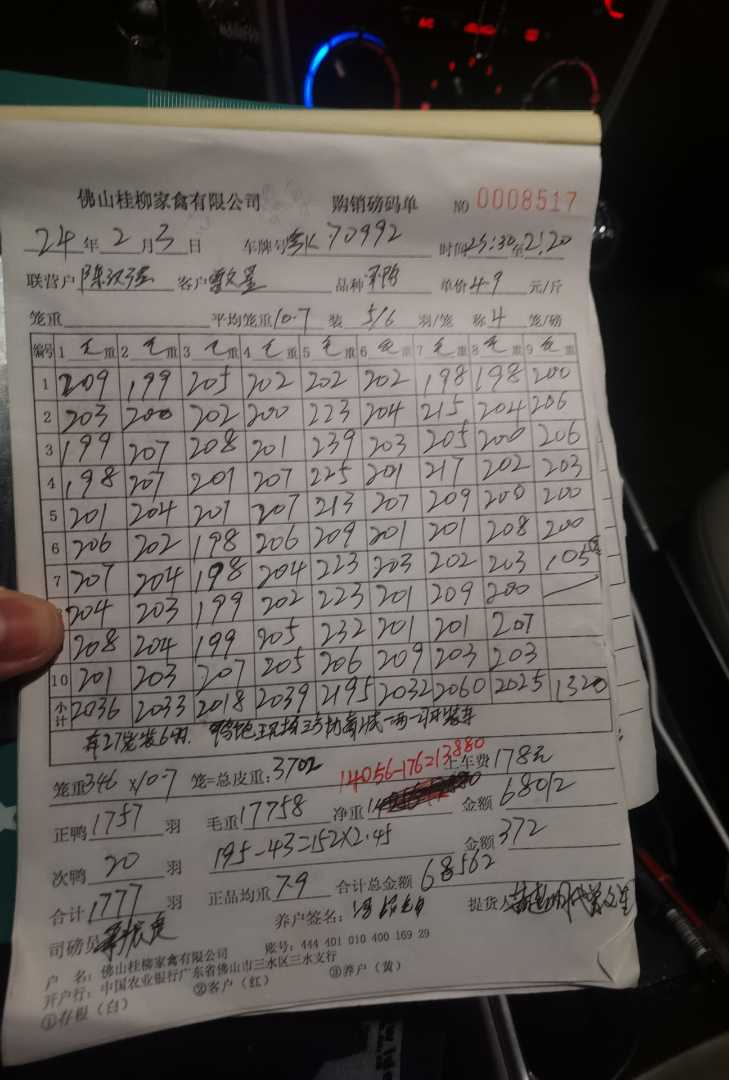 佛山桂柳家禽有限公司 购销磅码单 NO 0008517
24 年 2 月 3 日 车牌号 70992 时间 23:30 至 2:20
联营户 客户 品种 单价 4.9 元/斤
笼重 平均笼重 10.7 装 5/6 羽/笼 称 4 笼/磅
编号 1 毛重 2 毛重 3 毛重 4 毛重 5 毛重 6 毛重 7 毛重 8 毛重 9 毛重
1 209 199 205 202 202 202 198 198 200
2 203 200 202 200 223 204 215 204 206
3 199 207 208 201 239 203 205 200 206
4 198 207 201 207 225 201 217 202 203
5 201 204 207 207 213 207 209 200 200
6 206 202 198 206 209 201 201 208 200
7 207 204 198 204 223 203 202 203 105
204 203 199 202 223 201 209 200
208 204 199 205 232 201 201 207
10 201 203 207 205 206 209 203 203
小计 2036 2033 2018 2039 2195 2032 2060 2025 1320
有27笼装6羽.
笼重 346 x10.7 笼=总皮重: 3702 14056-176=13880 上车费 178元
正鸭 1757 羽 毛重 17758 净重 金额 68012
次鸭 20 羽 195-43=152×2.45 金额 372
合计 1777 羽 正品均重 7.9 合计总金额 68562
司磅员 养户签名: 提货人
户 名: 佛山桂柳家禽有限公司 账号: 444 401 010 400 169 29
开户行: 中国农业银行广东省佛山市三水区三水支行
①存根(白) ②客户(红) ③养户(黄)